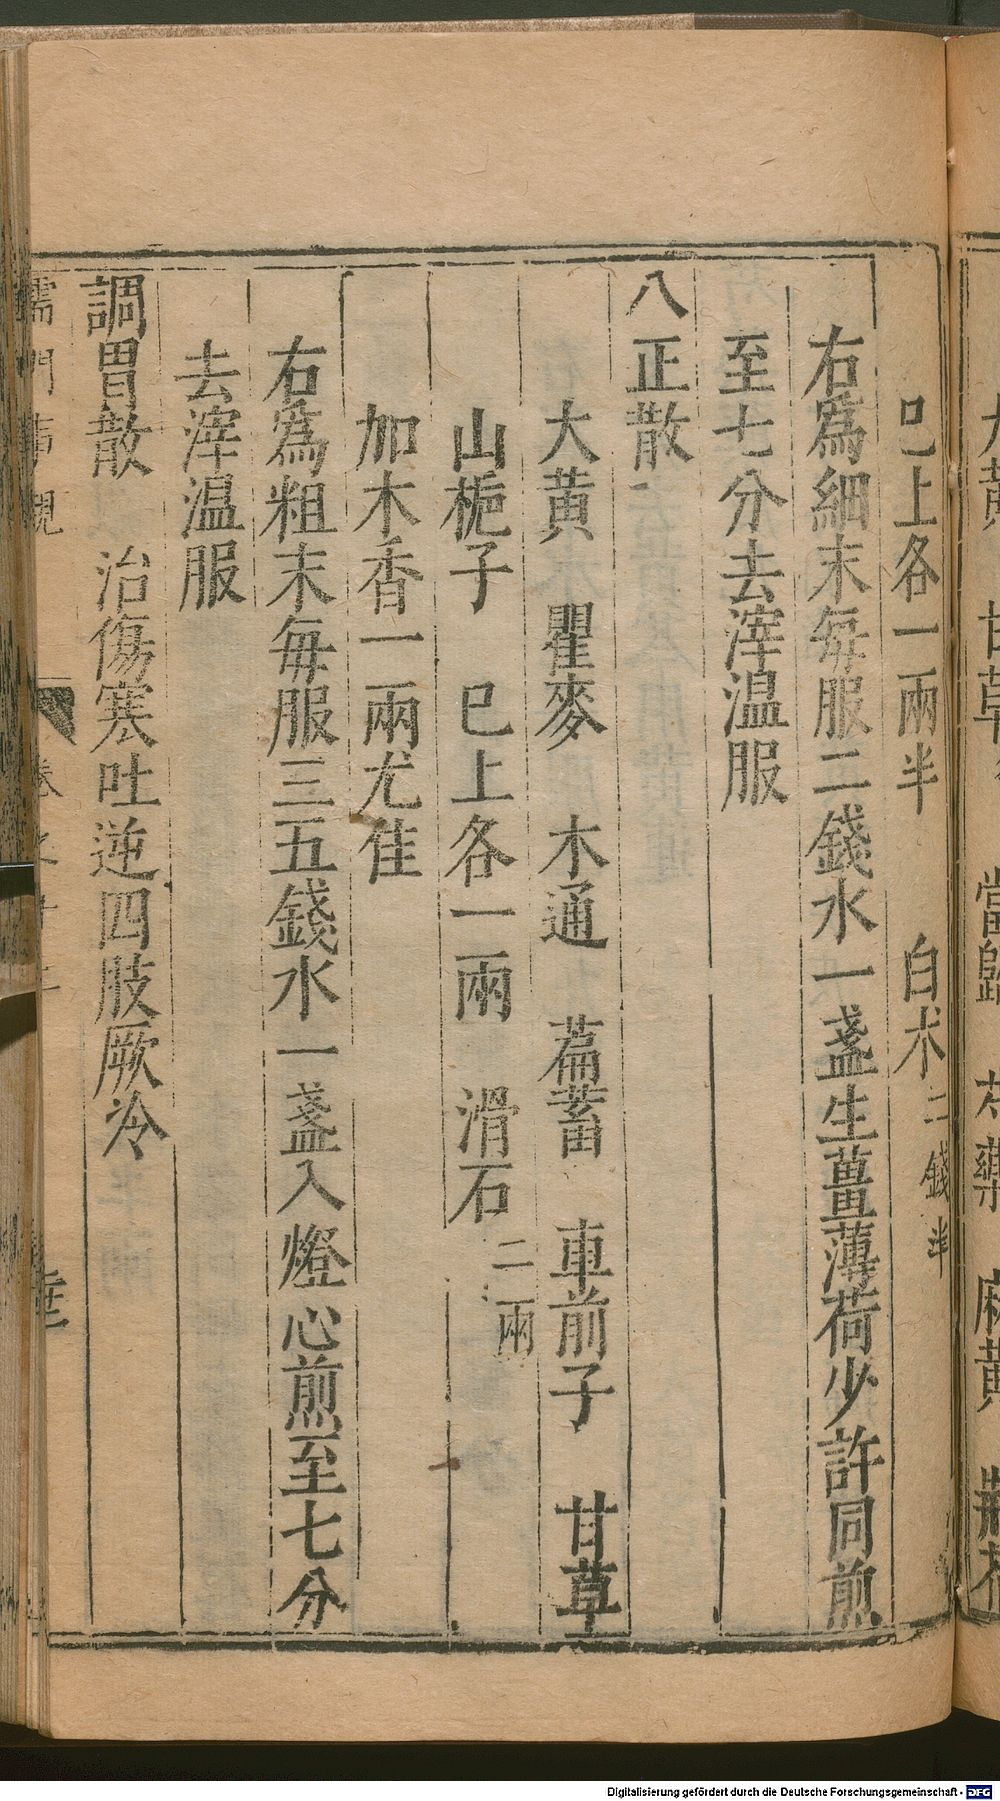 大黃 甘草 當歸 芍藥 麻黃 荊芥
已上各一兩半 白朮二錢半
右爲細末每服二錢水一盞生薑薄荷少許同煎
至七分去滓溫服
八正散
大黃 瞿麥 木通 萹蓄 車前子 甘草
山梔子 已上各一兩 滑石二兩
加木香一兩尤佳
右爲粗末每服三五錢水一盞入燈心煎至七分
去滓溫服
調胃散 治傷寒吐逆四肢厥冷
儒門事親
Digitalisierung gefördert durch die Deutsche Forschungsgemeinschaft - DFG